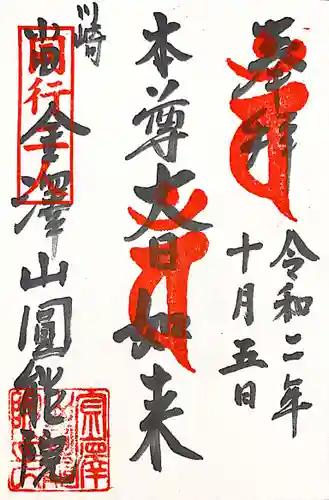 奉拝
令和二年
十月五日
本尊大日如来
川崎
當金澤山圓能院
行